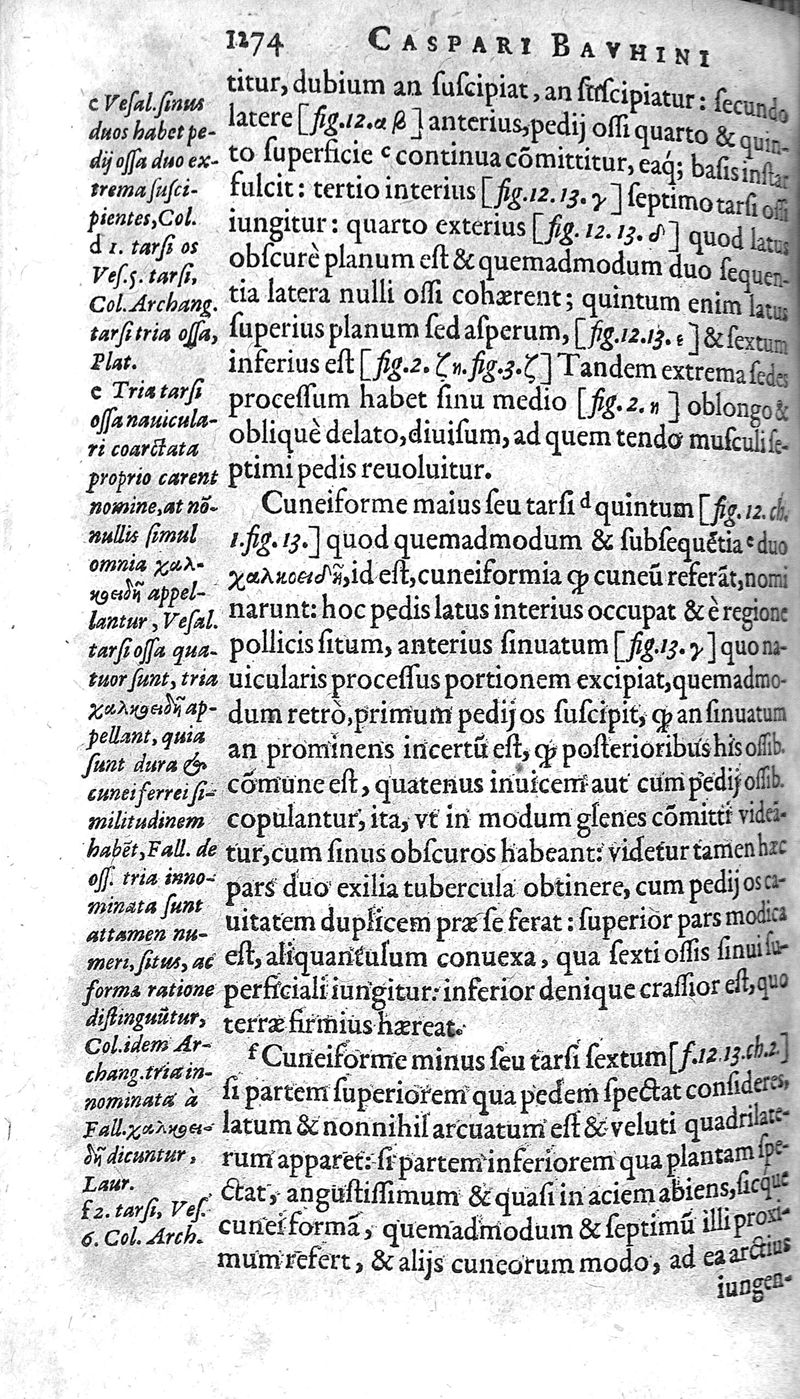 1274 CASPARI BAVHINI
titur, dubium an ſuſcipiat, an ſuſcipiatur: ſecundo
latere [fig.12.α β] anterius, pedij oſſi quarto & quin-
to ſuperficie ᶜ continua cõmittitur, eaq́; baſis inſtar
fulcit: tertio interius [fig.12.13.γ] ſeptimo tarſi oſſi
iungitur: quarto exterius [fig. 12. 13. δ] quod latus
obſcurè planum eſt & quemadmodum duo ſequen-
tia latera nulli oſſi cohærent; quintum enim latus
ſuperius planum ſed aſperum, [fig.12.13. ε] & ſextum
inferius eſt [fig.2. ζ η. fig.3. ζ] Tandem extrema ſedes
proceſſum habet ſinu medio [fig.2. η ] oblongo &
obliquè delato, diuiſum, ad quem tendo muſculi ſe-
ptimi pedis reuoluitur.
Cuneiforme maius ſeu tarſi ᵈ quintum [fig.12. ch.
1. fig. 13.] quod quemadmodum & ſubſequẽtia ᵉ duo
χαλκοειδῆ, id eſt, cuneiformia ꝙ cuneũ referãt, nomi
narunt: hoc pedis latus interius occupat & è regione
pollicis ſitum, anterius ſinuatum [fig.13. γ] quo na-
uicularis proceſſus portionem excipiat, quemadmo-
dum retrò, primum pedij os ſuſcipit, ꝙ an ſinuatum
an prominens incertũ eſt, ꝙ poſterioribus his oſſib.
cõmune eſt, quatenus inuicem aut cum pedij oſſib.
copulantur, ita, vt in modum glenes cõmitti videã-
tur, cum ſinus obſcuros habeant: videtur tamen hæc
pars duo exilia tubercula obtinere, cum pedij os ca-
uitatem duplicem præ ſe ferat: ſuperior pars modica
eſt, aliquantulum conuexa, qua ſexti oſſis ſinui ſu-
perficiali iungitur: inferior denique craſſior eſt, quo
terræ firmius hæreat.
ᶠ Cuneiforme minus ſeu tarſi ſextum [f.12.13.ch.2]
ſi partem ſuperiorem qua pedem ſpectat conſideres,
latum & nonnihil arcuatum eſt & veluti quadrilate-
rum apparet: ſi partem inferiorem qua plantam ſpe-
ctat, anguſtiſſimum & quaſi in aciem abiens, ſicque
cunei formã, quemadmodum & ſeptimũ illi proxi-
mum refert, & alijs cuneorum modo, ad ea arctius
iungen-
c Veſal. ſinus
duos habet pe-
dij oſſa duo ex-
trema ſuſci-
pientes, Col.
d 1. tarſi os
Veſ. 5. tarſi,
Col. Archang.
tarſi tria oſſa,
Plat.
e Tria tarſi
oſſa nauicula-
ri coarctata
proprio carent
nomine, at nõ-
nullis ſimul
omnia χαλ-
κοειδῆ appel-
lantur, Veſal.
tarſi oſſa qua-
tuor ſunt, tria
χαλκοειδῆ ap-
pellant, quia
ſunt dura &
cunei ferrei ſi-
militudinem
habẽt, Fall. de
oſſ. tria inno-
minata ſunt
attamen nu-
meri, ſitus, ac
forma ratione
diſtinguũtur,
Col. idem Ar-
chang. tria in-
nominata à
Fall. χαλκοει-
δῆ dicuntur,
Laur.
f 2. tarſi, Veſ.
6. Col. Arch.